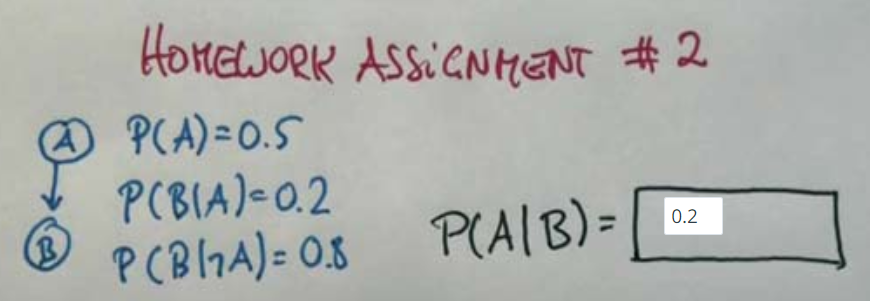 HOMEWORK ASSiGNMENT # 2
A P(A)=0.5
P(B|A)=0.2
B P(B|¬A)=0.8
P(A|B)= 0.2